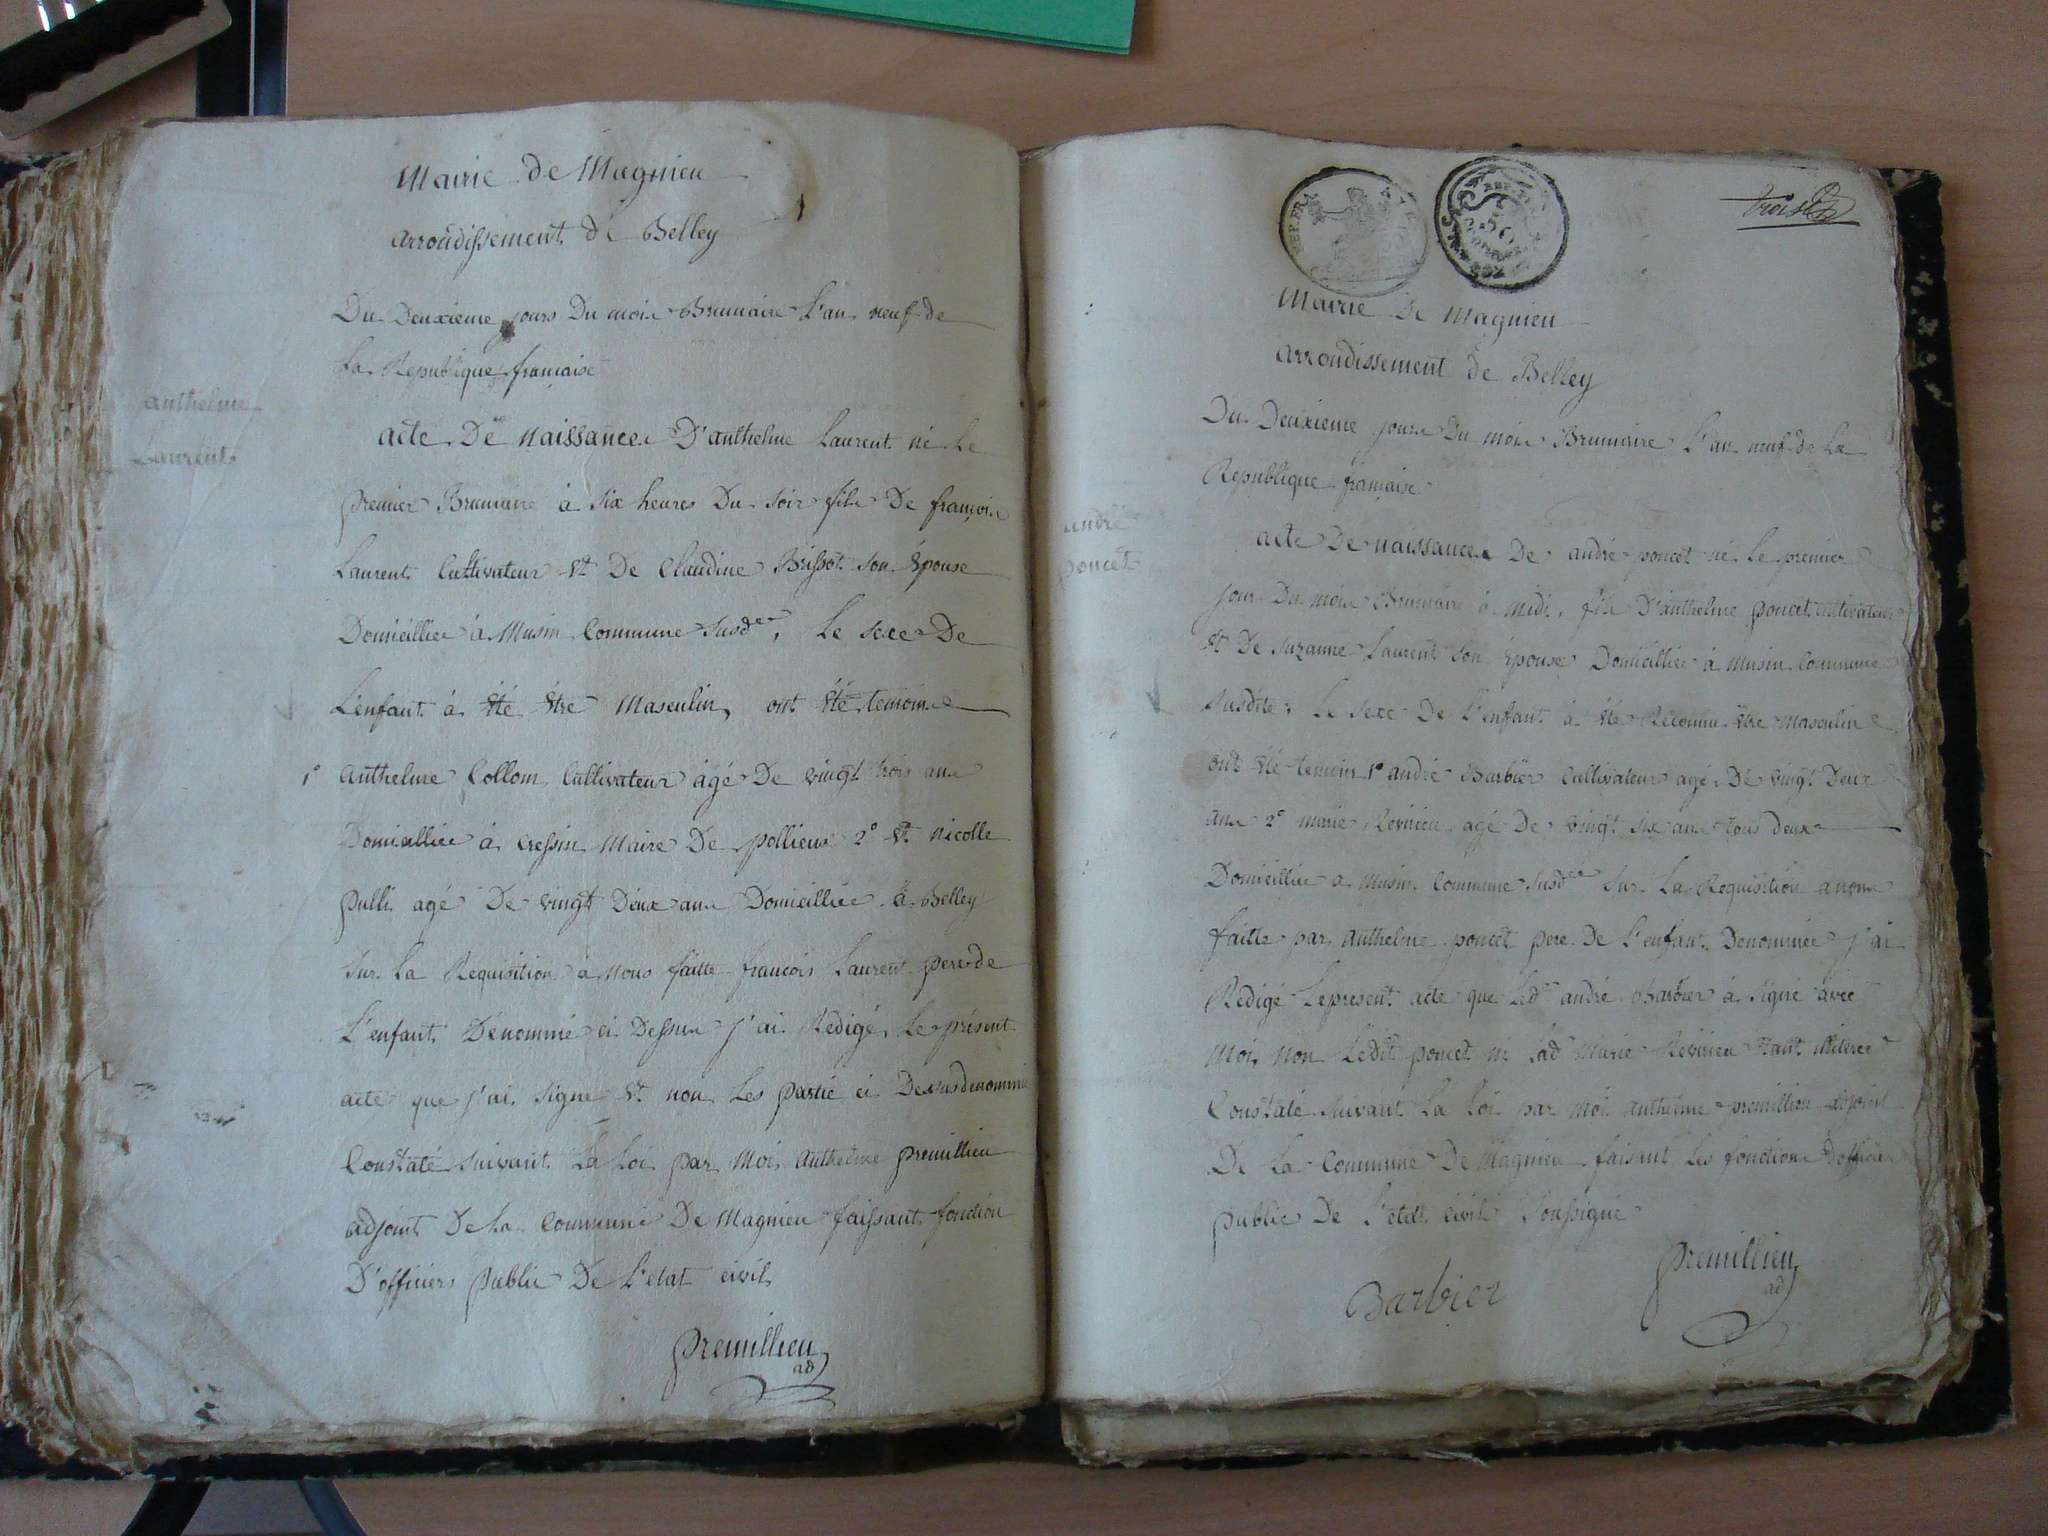 Mairie de Magnieu
arrondissement de Belley
Du Deuxieme jours Du mois Brumaire L'an neuf de
La Republique française
anthelme
Laurent
acte De naissance D'anthelme Laurent né Le
premier Brumaire à six heures Du soir fils De françois
Laurent Cultivateur Et De Claudine Brissot son Epouse
Domicilliée à Musin Commune susdte, Le sexe De
L'enfant à été être Masculin, ont été temoins
1° Anthelme Collom Cultivateur âgé De vingt trois ans
Domicilliée à Cressin Maire De pollieux 2° Et nicolle
pulli agé De vingt Deux ans Domicilliée à Belley
sur La Requisition à nous faitte françois Laurent pere de
L'enfant Dénommé ci Dessus j'ai Redigé Le présent
acte que j'ai signe Et non Les partie ci Dessus denommé
Constaté suivant La Loi par Moi Anthelme premillieu
adjoint De La Commune De Magnieu faissant fonction
D'officiers public De L'etat civil
premillieu
ad
trois
Mairie De Magnieu
arrondissement de Belley
Du Deuxieme jours Du mois Brumaire L'an neuf de La
Republique française
andré
poncet
acte De naissance De andré poncet né Le premier
jour Du mois Brumaire à midi, fils D'anthelme poncet cultivateur
Et De suzanne Laurent son Epouse Domicilliée à Musin Commune
susdite; Le sexe De L'enfant à été Reconnu être masculin
ont été temoin 1° andré Barbier Cultivateur agé De vingt Deux
ans 2° marie Révirieu agé De vingt six ans tous deux
Domicilliée a Musin Commune susdte sur La Requisition a nous
faitte par Anthelme poncet pere De L'enfant Denommée j'ai
Rédigé Le present acte que Led andré Barbier à signé avec
Moi, non Ledit poncet ni Lad Marie Révirieu Etant illiterer
Constaté suivant La Loi par moi anthelme premillieu adjoint
De La Commune De Magnieu faisant Les fonctions D'officier
public De L'etat civil soussigné
Barbier
premillieu
ad